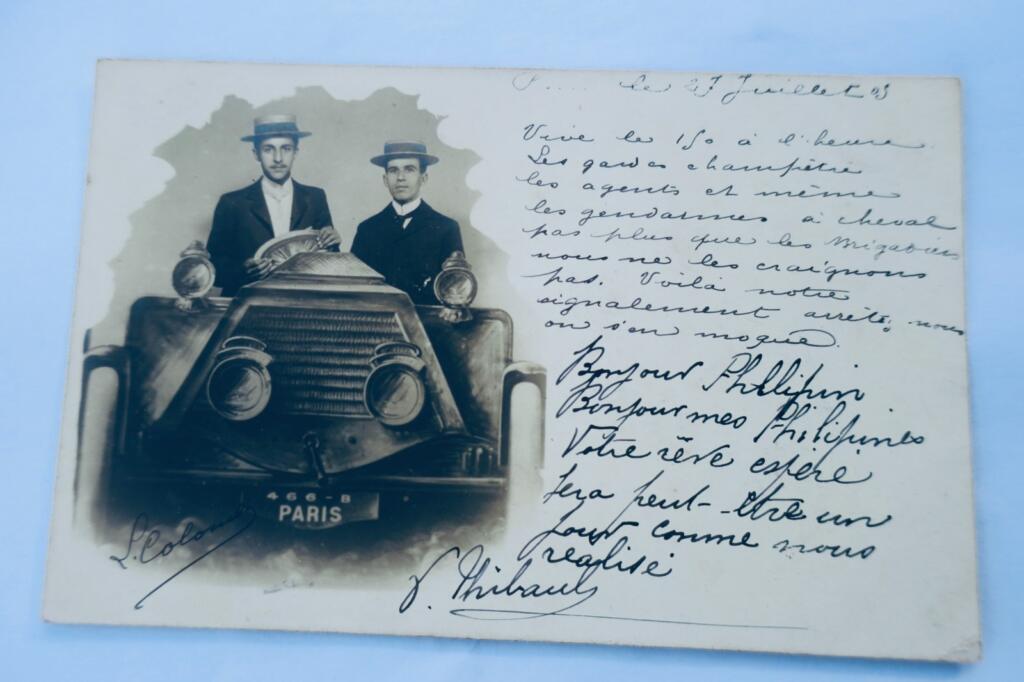 le 27 Juillet 03
Vive le 150 à l'heure
Les gardes champêtre
les agents et même
les gendarmes à cheval
pas plus que les
nous ne les craignons
pas. Voilà notre
signalement arrêté, nous
on s'en moque.
Bonjour Phillipin
Bonjour mes Philipines
Votre rêve espéré
sera peut-être un
jour comme nous
réalisé
466-B
PARIS
L. Colomb
V. Thibault